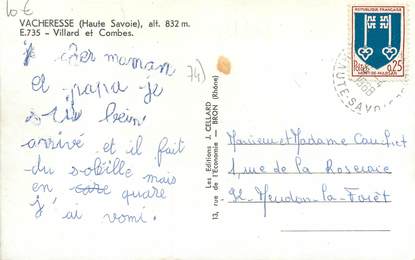 10€
VACHERESSE (Haute Savoie), alt. 832 m.
E.735 - Villard et Combes.
74)
je cher maman
et papa je
suis bein
arrivé et il fait
du sobille mais
en care quare
j'ai vomi.
Les Editions J. CELLARD
13, rue de l'Economie - BRON (Rhône)
REPUBLIQUE FRANÇAISE
Postes 0,25
MONT-DE-MARSAN
1968
HAUTE-SAVOIE
Monsieur et Madame
1, rue de la Roseraie
92-Meudon-la-Forêt